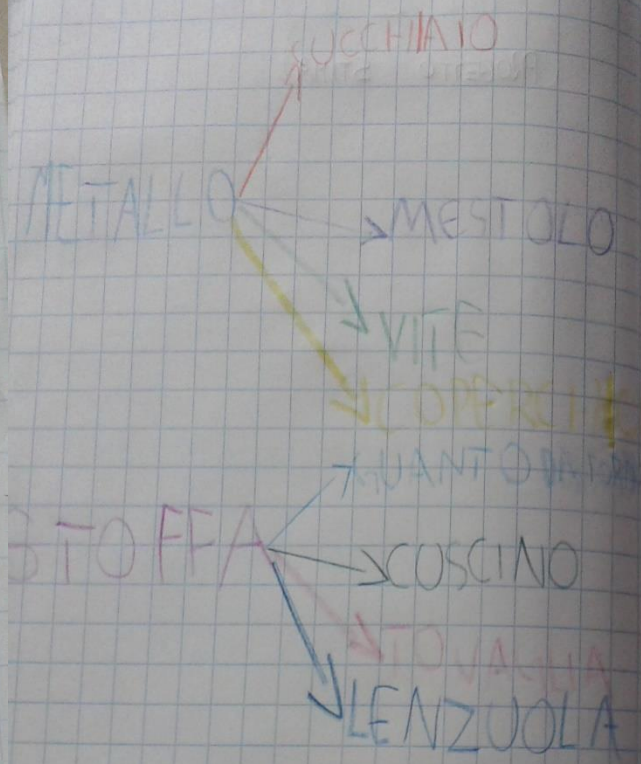 CUCCHIAIO
METALLO
MESTOLO
VITE
COPERCHIO
GUANTO DA FORNO
STOFFA
CUSCINO
TOVAGLIA
LENZUOLA